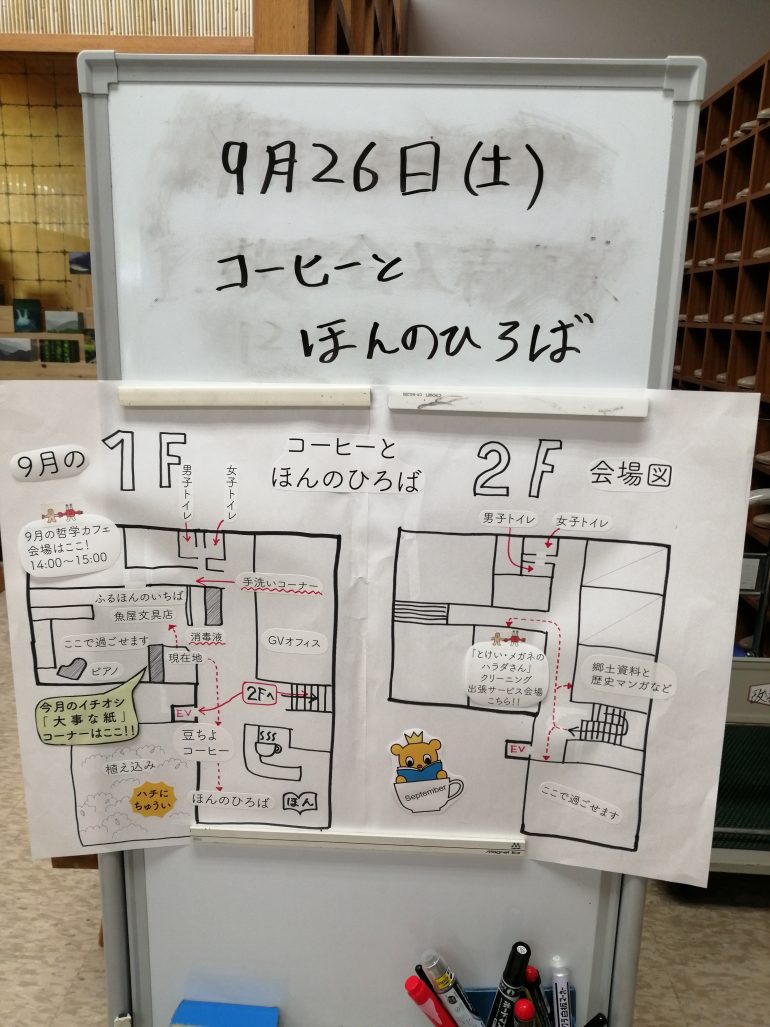 9月26日(土)
コーヒーと
ほんのひろば
9月の
1F
コーヒーと
ほんのひろば
2F
会場図
男子トイレ
女子トイレ
9月の哲学カフェ
会場はここ!
14:00〜15:00
手洗いコーナー
ふるほんのいちば
魚屋文具店
消毒液
ここで過ごせます
現在地
ピアノ
GVオフィス
今月のイチオシ
「大事な紙」
コーナーはここ!!
EV
2Fへ
豆ちよ
コーヒー
植え込み
ハチに
ちゅうい
ほんのひろば
ほん
男子トイレ
女子トイレ
「とけい・メガネの
ハラダさん」
クリーニング
出張サービス会場
こちら!!
郷土資料と
歴史マンガなど
EV
September
ここで過ごせます